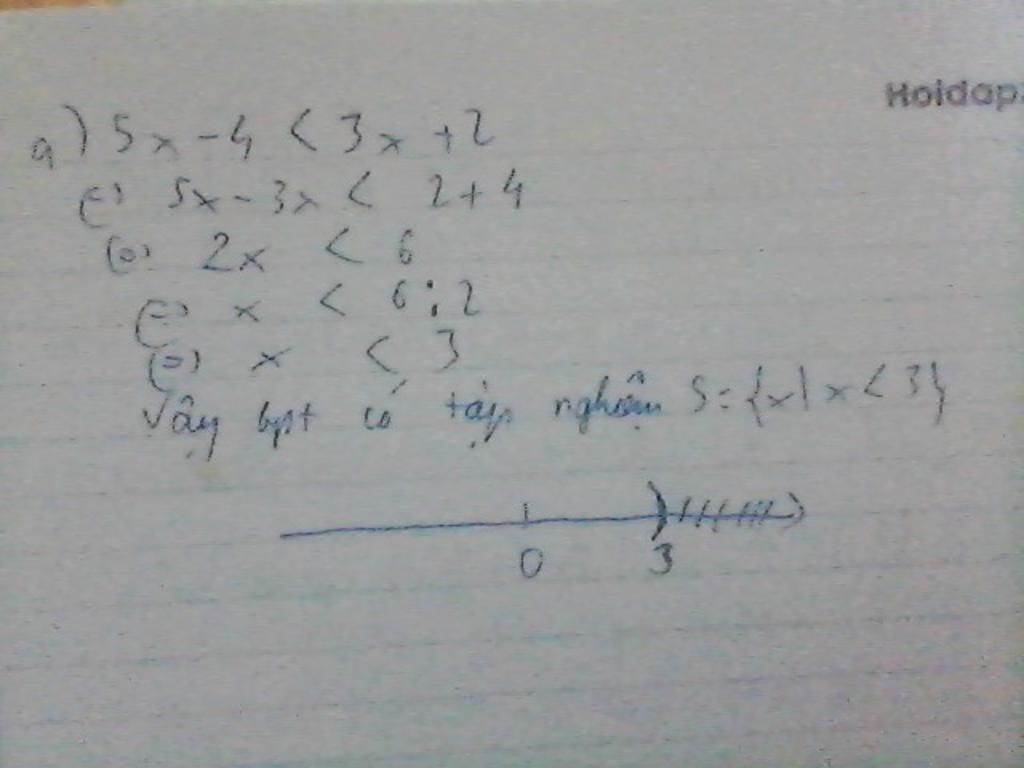 Hoidap
a) 5x - 4 < 3x + 2
(=) 5x - 3x < 2 + 4
(=) 2x < 6
(=) x < 6 : 2
(=) x < 3
Vậy bpt có tập nghiệm S = {x | x < 3}
0 3